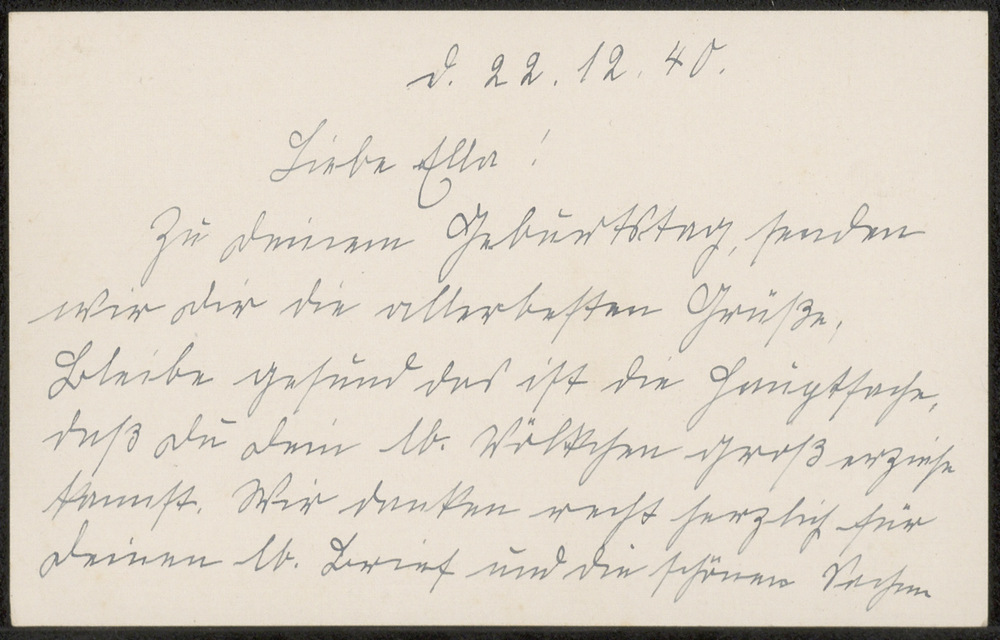 d. 22.12.40.
Liebe Ella!
Zu deinem Geburtstag, senden
wir dir die allerbesten Grüße,
Bleibe gesund das ist die Hauptsache,
daß du dein lb. Völkchen groß erziehe
kannst. Wir danken recht herzlich für
deinen lb. Brief und die schönen Sachen